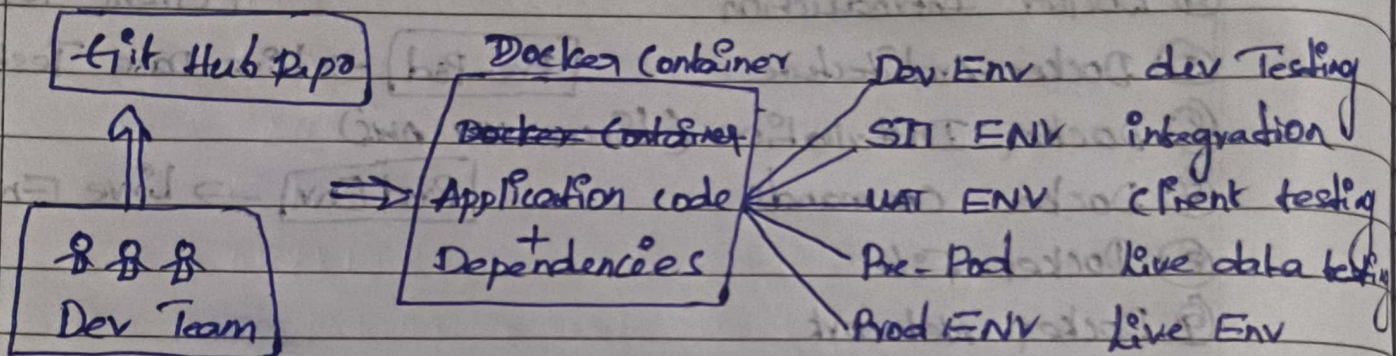 Git Hub Repo
Docker Container
Docker Container
Application code
+
Dependencies
Dev Team
Dev. Env dev Testing
SIT ENV integration
UAT ENV client testing
Pre-Pod live data testing
Prod ENV Live Env